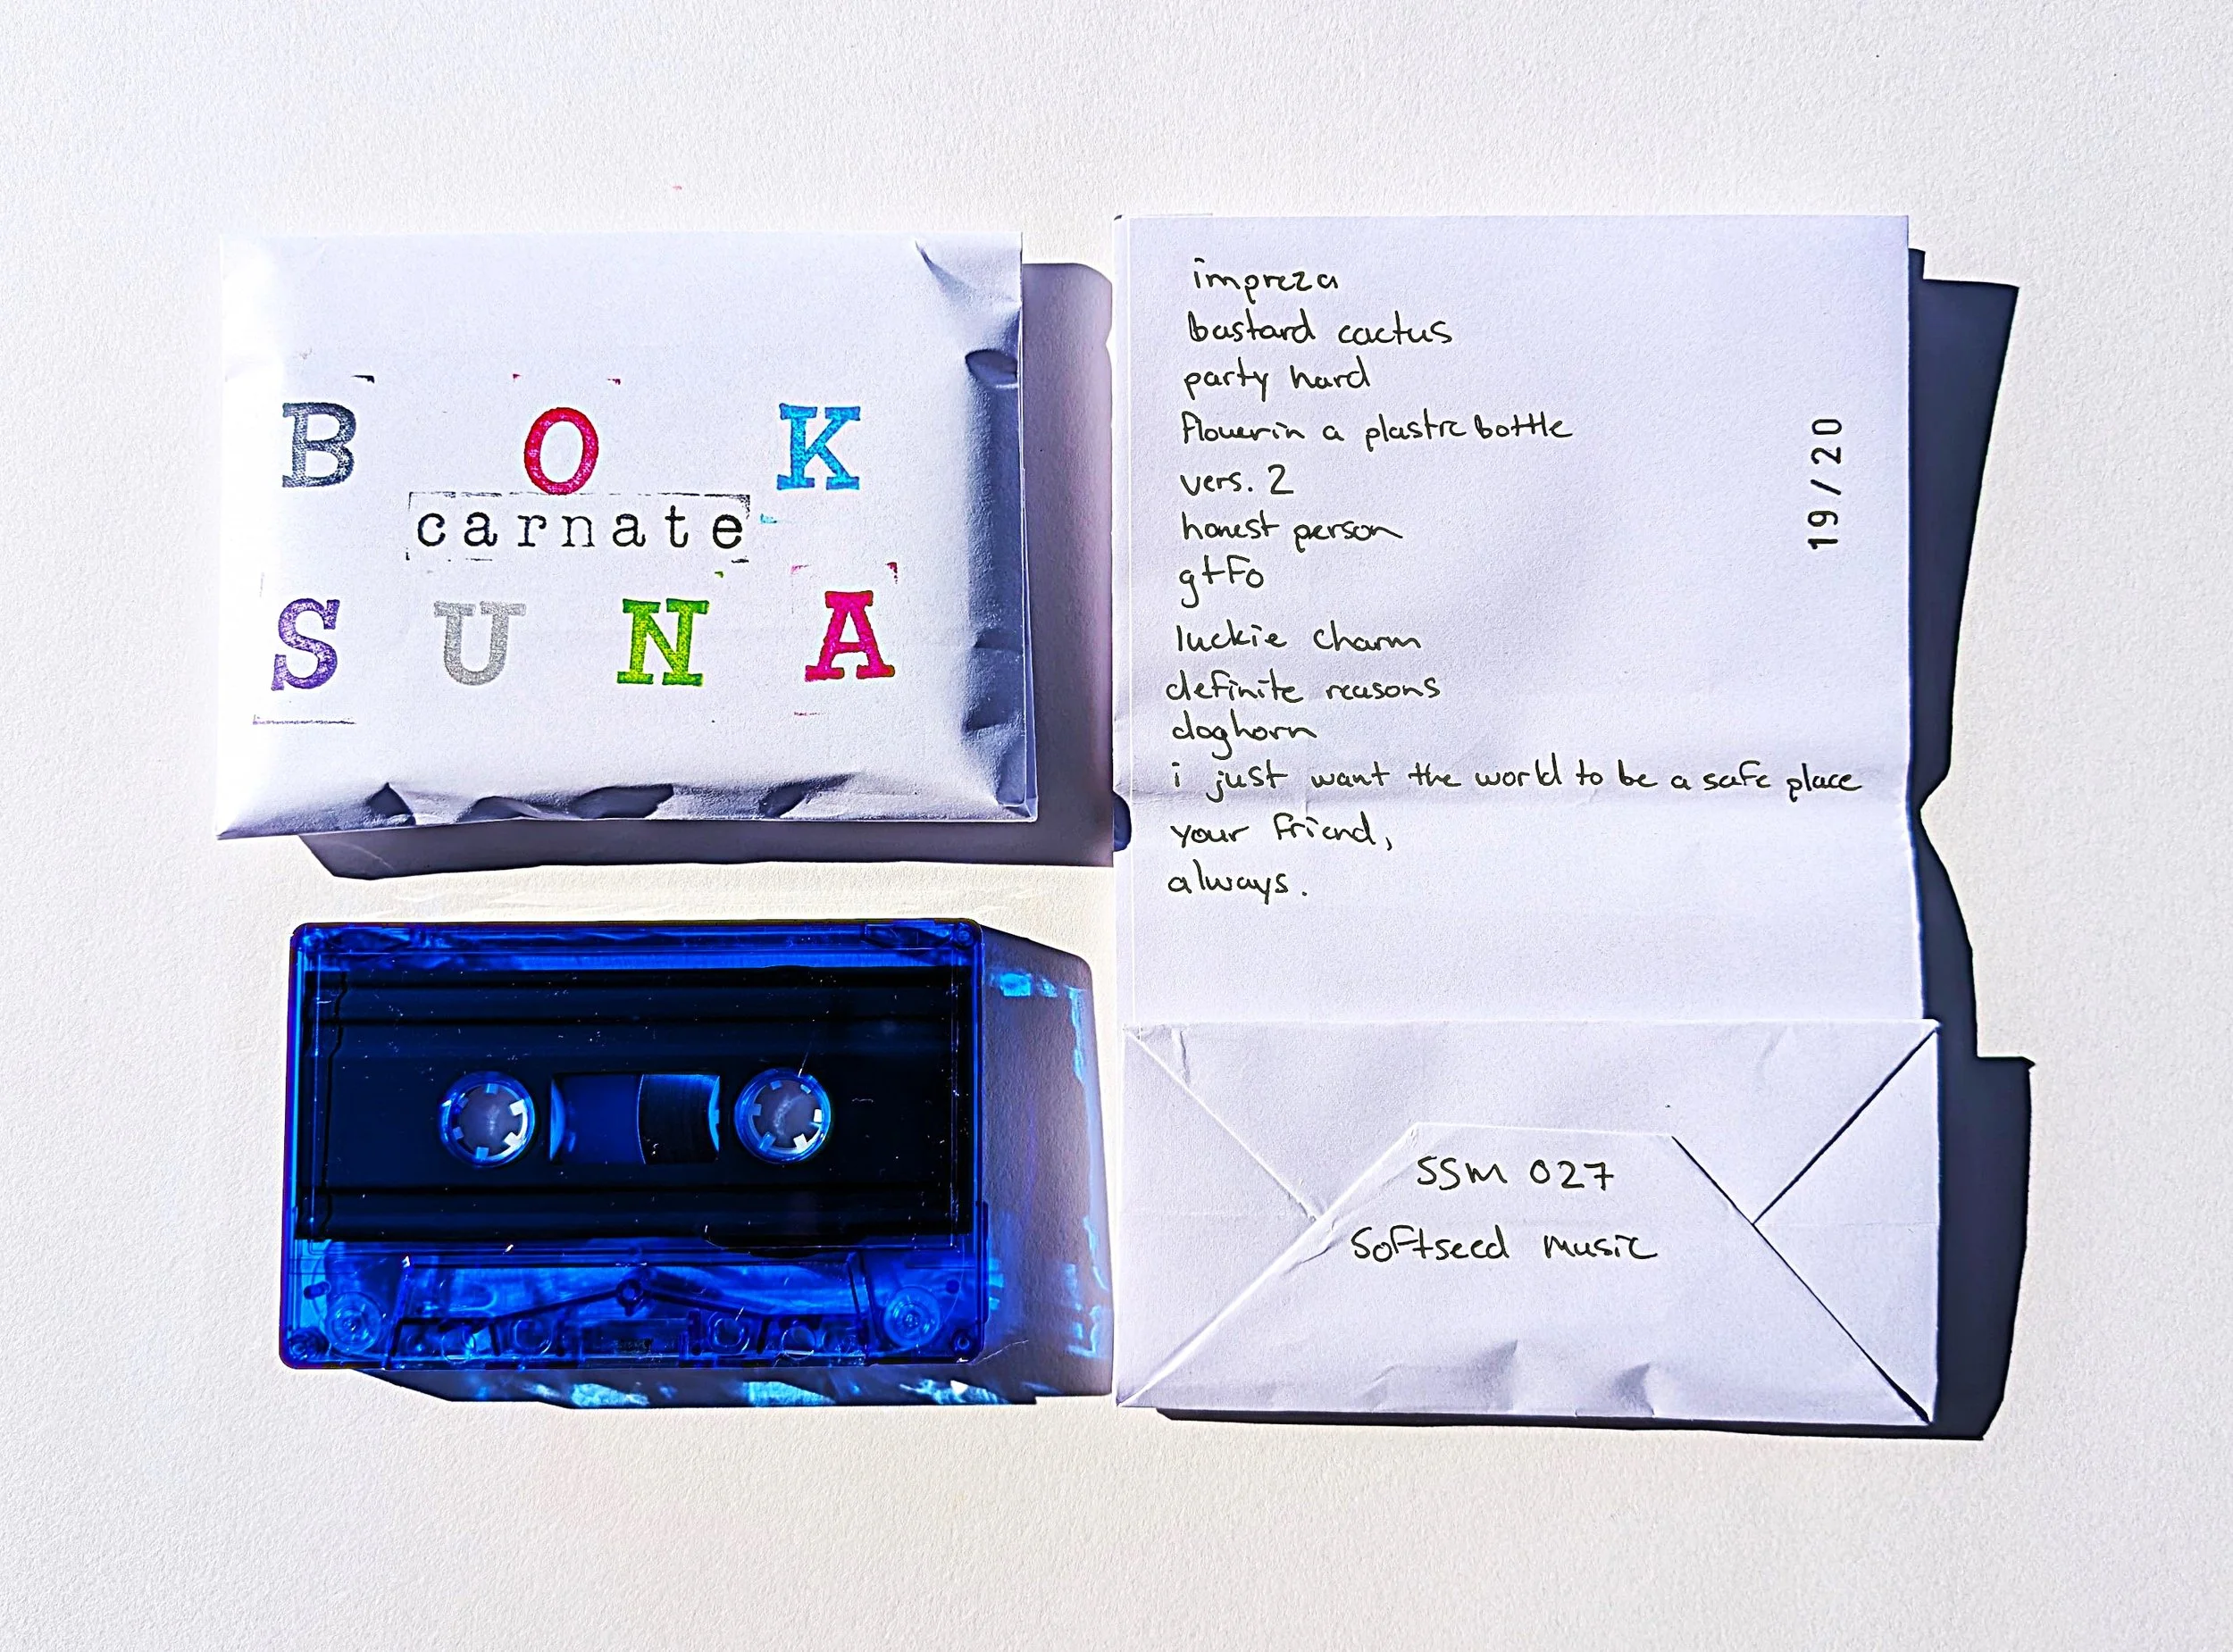 B O K
carnate
S U N A
impreza
bastard cactus
party hard
flower in a plastic bottle
vers. 2
honest person
gtfo
luckie charm
definite reasons
doghorn
i just want the world to be a safe place
your friend,
always.
19/20
SSM 027
Softseed music